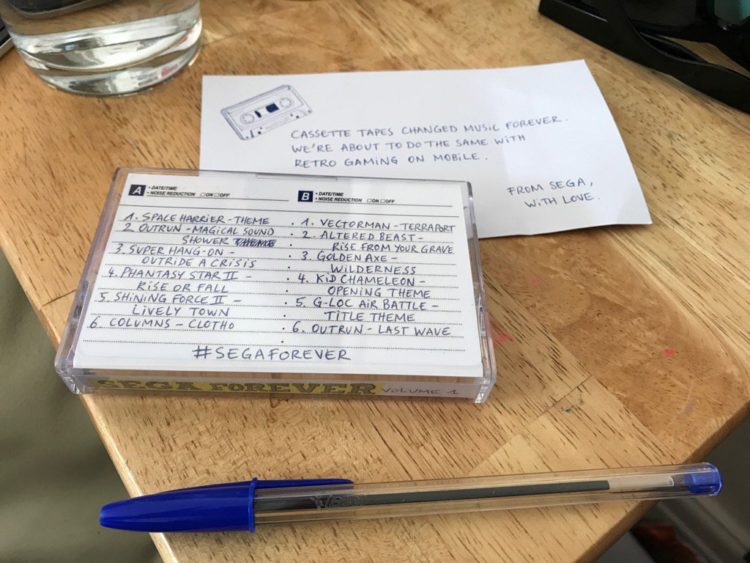 CASSETTE TAPES CHANGED MUSIC FOREVER.
WE'RE ABOUT TO DO THE SAME WITH
RETRO GAMING ON MOBILE.
FROM SEGA,
WITH LOVE.
A • DATE/TIME
• NOISE REDUCTION ☐ON ☐OFF
1. SPACE HARRIER - THEME
2. OUTRUN - MAGICAL SOUND
SHOWER THEME
3. SUPER HANG-ON -
OUTRIDE A CRISIS
4. PHANTASY STAR II -
RISE OR FALL
5. SHINING FORCE II -
LIVELY TOWN
6. COLUMNS - CLOTHO
B • DATE/TIME
• NOISE REDUCTION ☐ON ☐OFF
1. VECTORMAN - TERRAPORT
2. ALTERED BEAST -
RISE FROM YOUR GRAVE
3. GOLDEN AXE -
WILDERNESS
4. KID CHAMELEON -
OPENING THEME
5. G-LOC AIR BATTLE -
TITLE THEME
6. OUTRUN - LAST WAVE
#SEGAFOREVER
SEGA FOREVER VOLUME 1